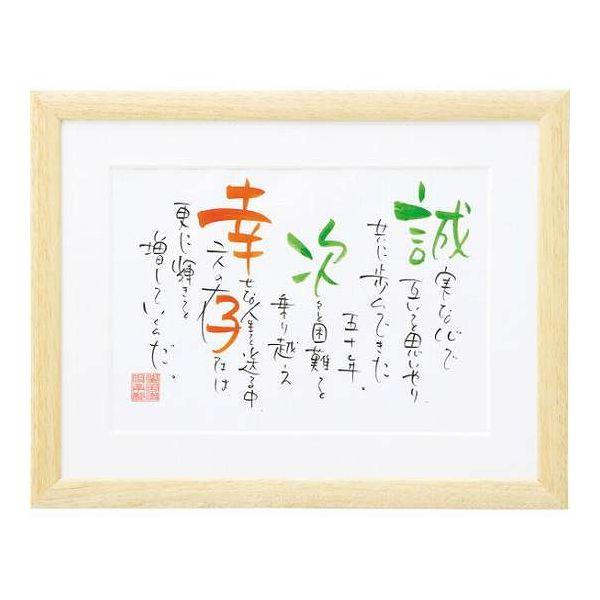 誠実な心で
互いを思いやり、
共に歩んできた
五十年。
次々と困難を
乗り越え
幸せな人生を送る中、
二人の存在は
更に輝きを
増していくんだ。